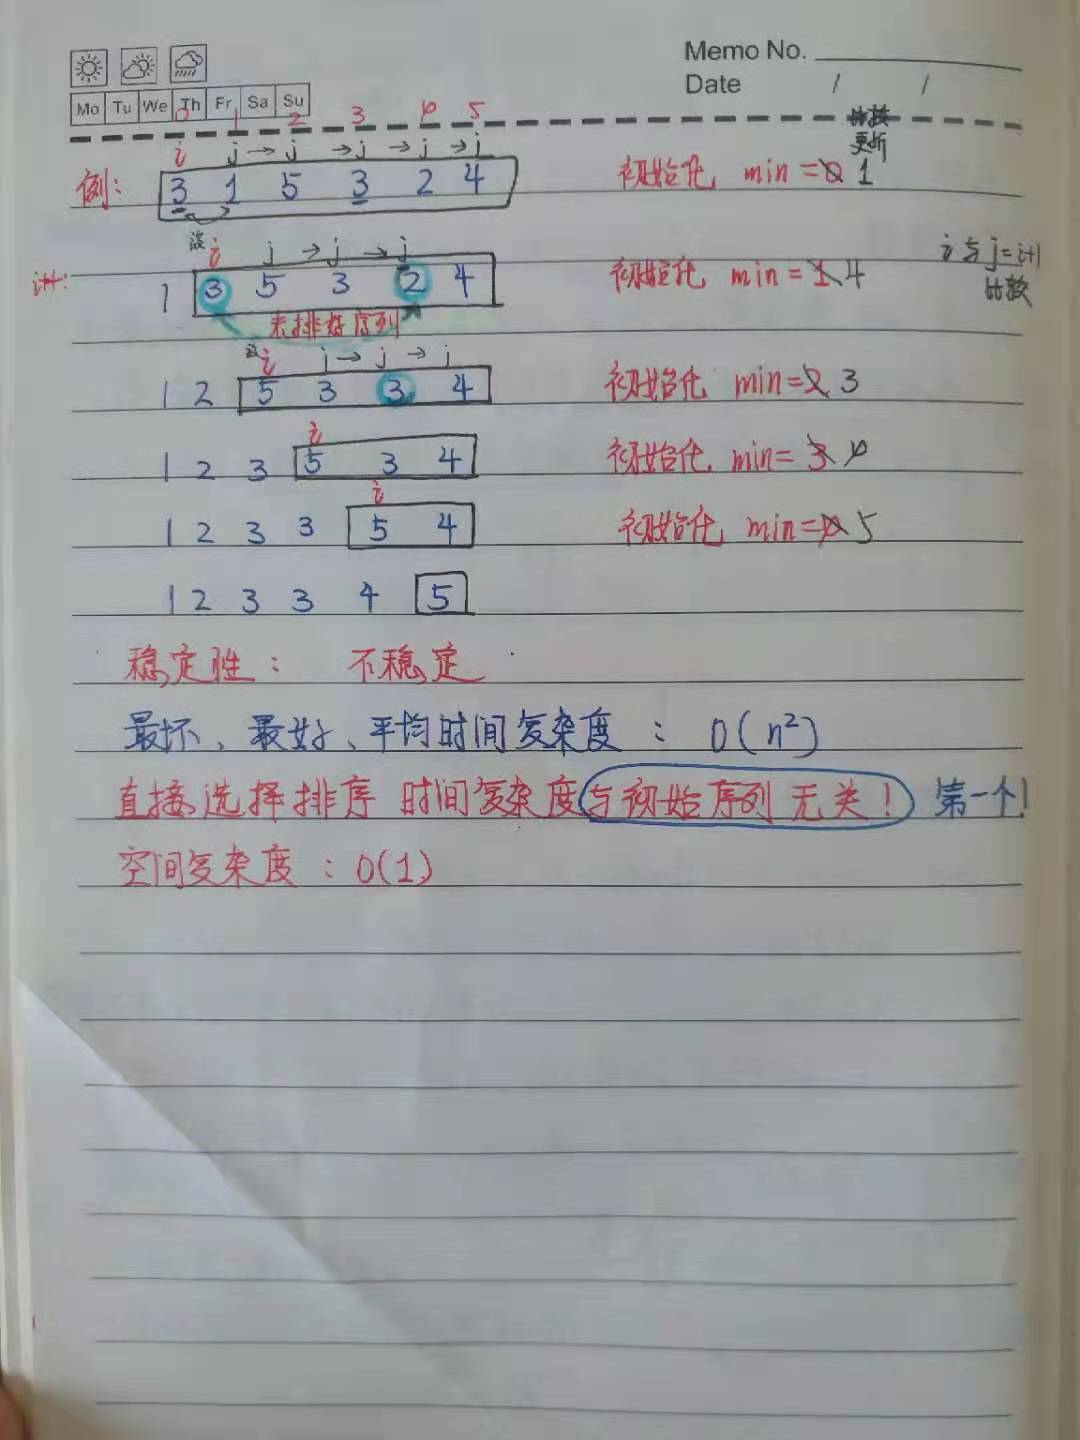 Memo No.
Date / /
Mo Tu We Th Fr Sa Su
0 1 2 3 4 5
比较
更新
i j → j → j → j → j
例: 3 1 5 3 2 4 初始化 min = 0 1
i j → j → j
i++: 1 3 5 3 2 4 初始化 min = 1 4
i 与 j = i+1
比较
未排好序列
i j → j → j
1 2 5 3 3 4 初始化 min = 2 3
i
1 2 3 5 3 4 初始化 min = 3 4
i
1 2 3 3 5 4 初始化 min = 4 5
1 2 3 3 4 5
稳定胜: 不稳定
最坏、最好、平均时间复杂度: O(n²)
直接选择排序 时间复杂度与初始序列无关! 第一个!
空间复杂度: O(1)